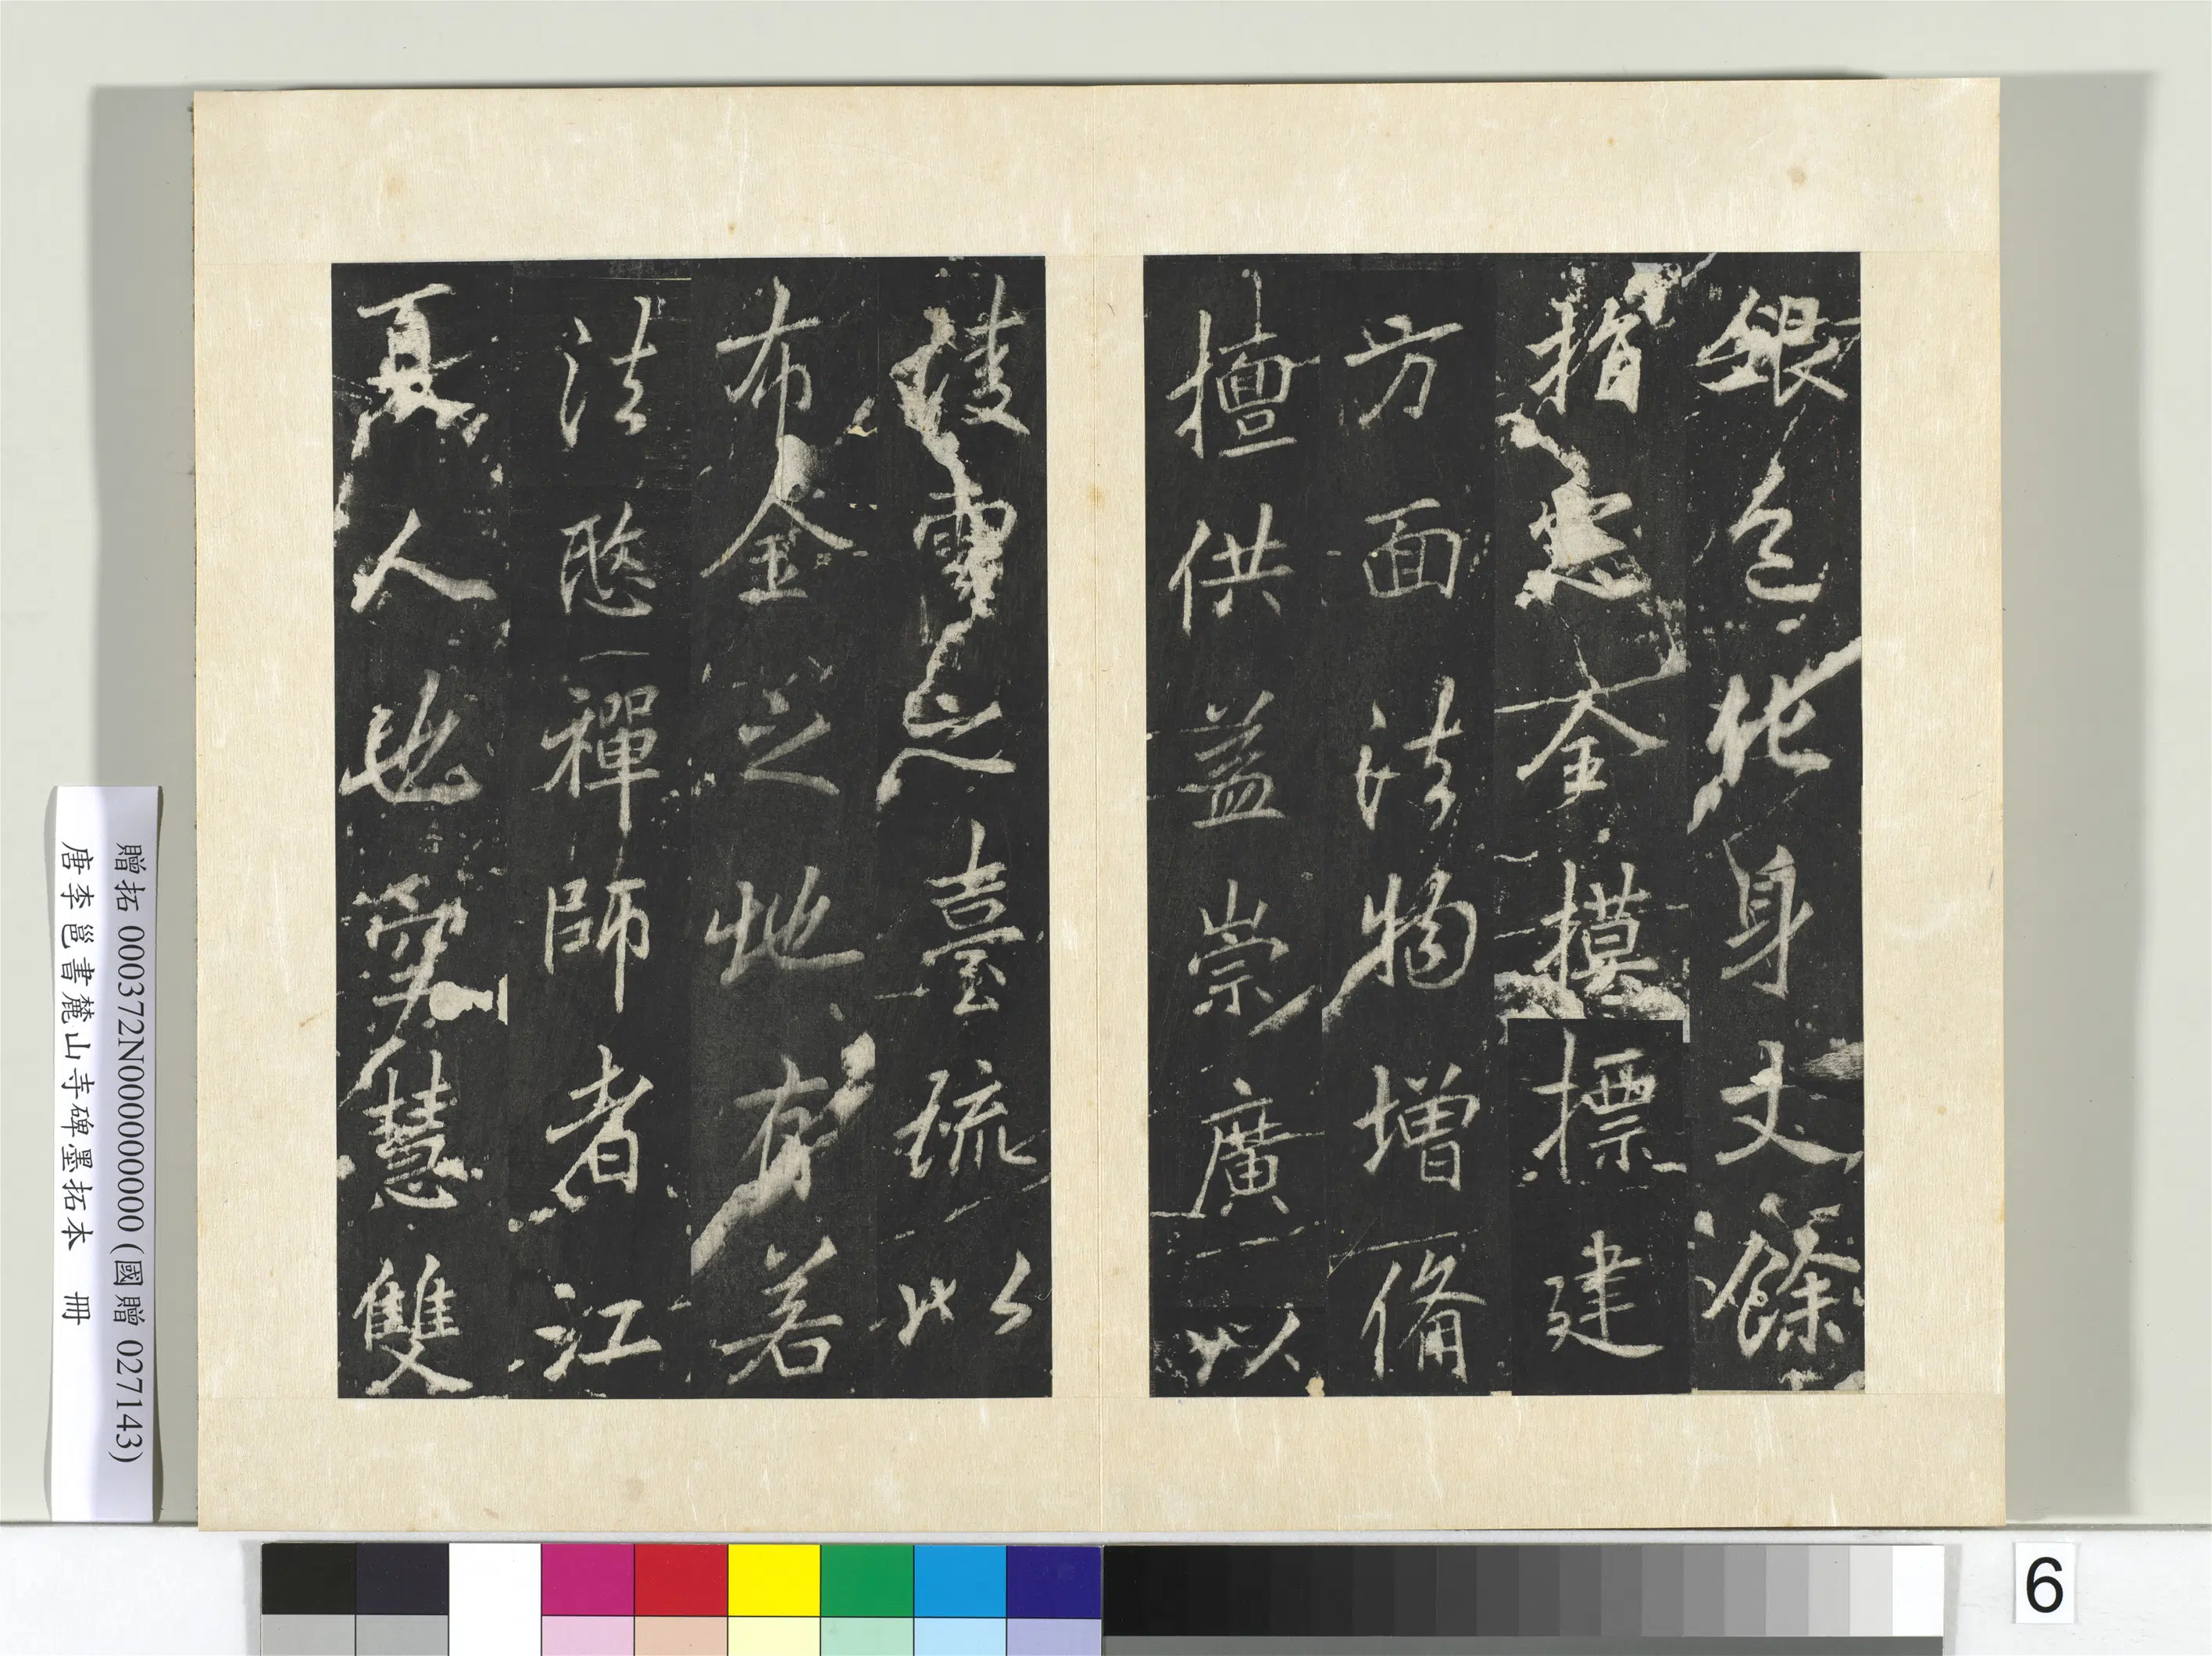 銀色化身丈餘
指定全摸摽建
方面法物增備
擅供益崇廣以
凌雲之臺疏以
布金之地有若
法愍禪師者江
夏人也慧雙
贈拓 000372N000000000 (國贈 027143)
唐李邕書麓山寺碑墨拓本 冊
6